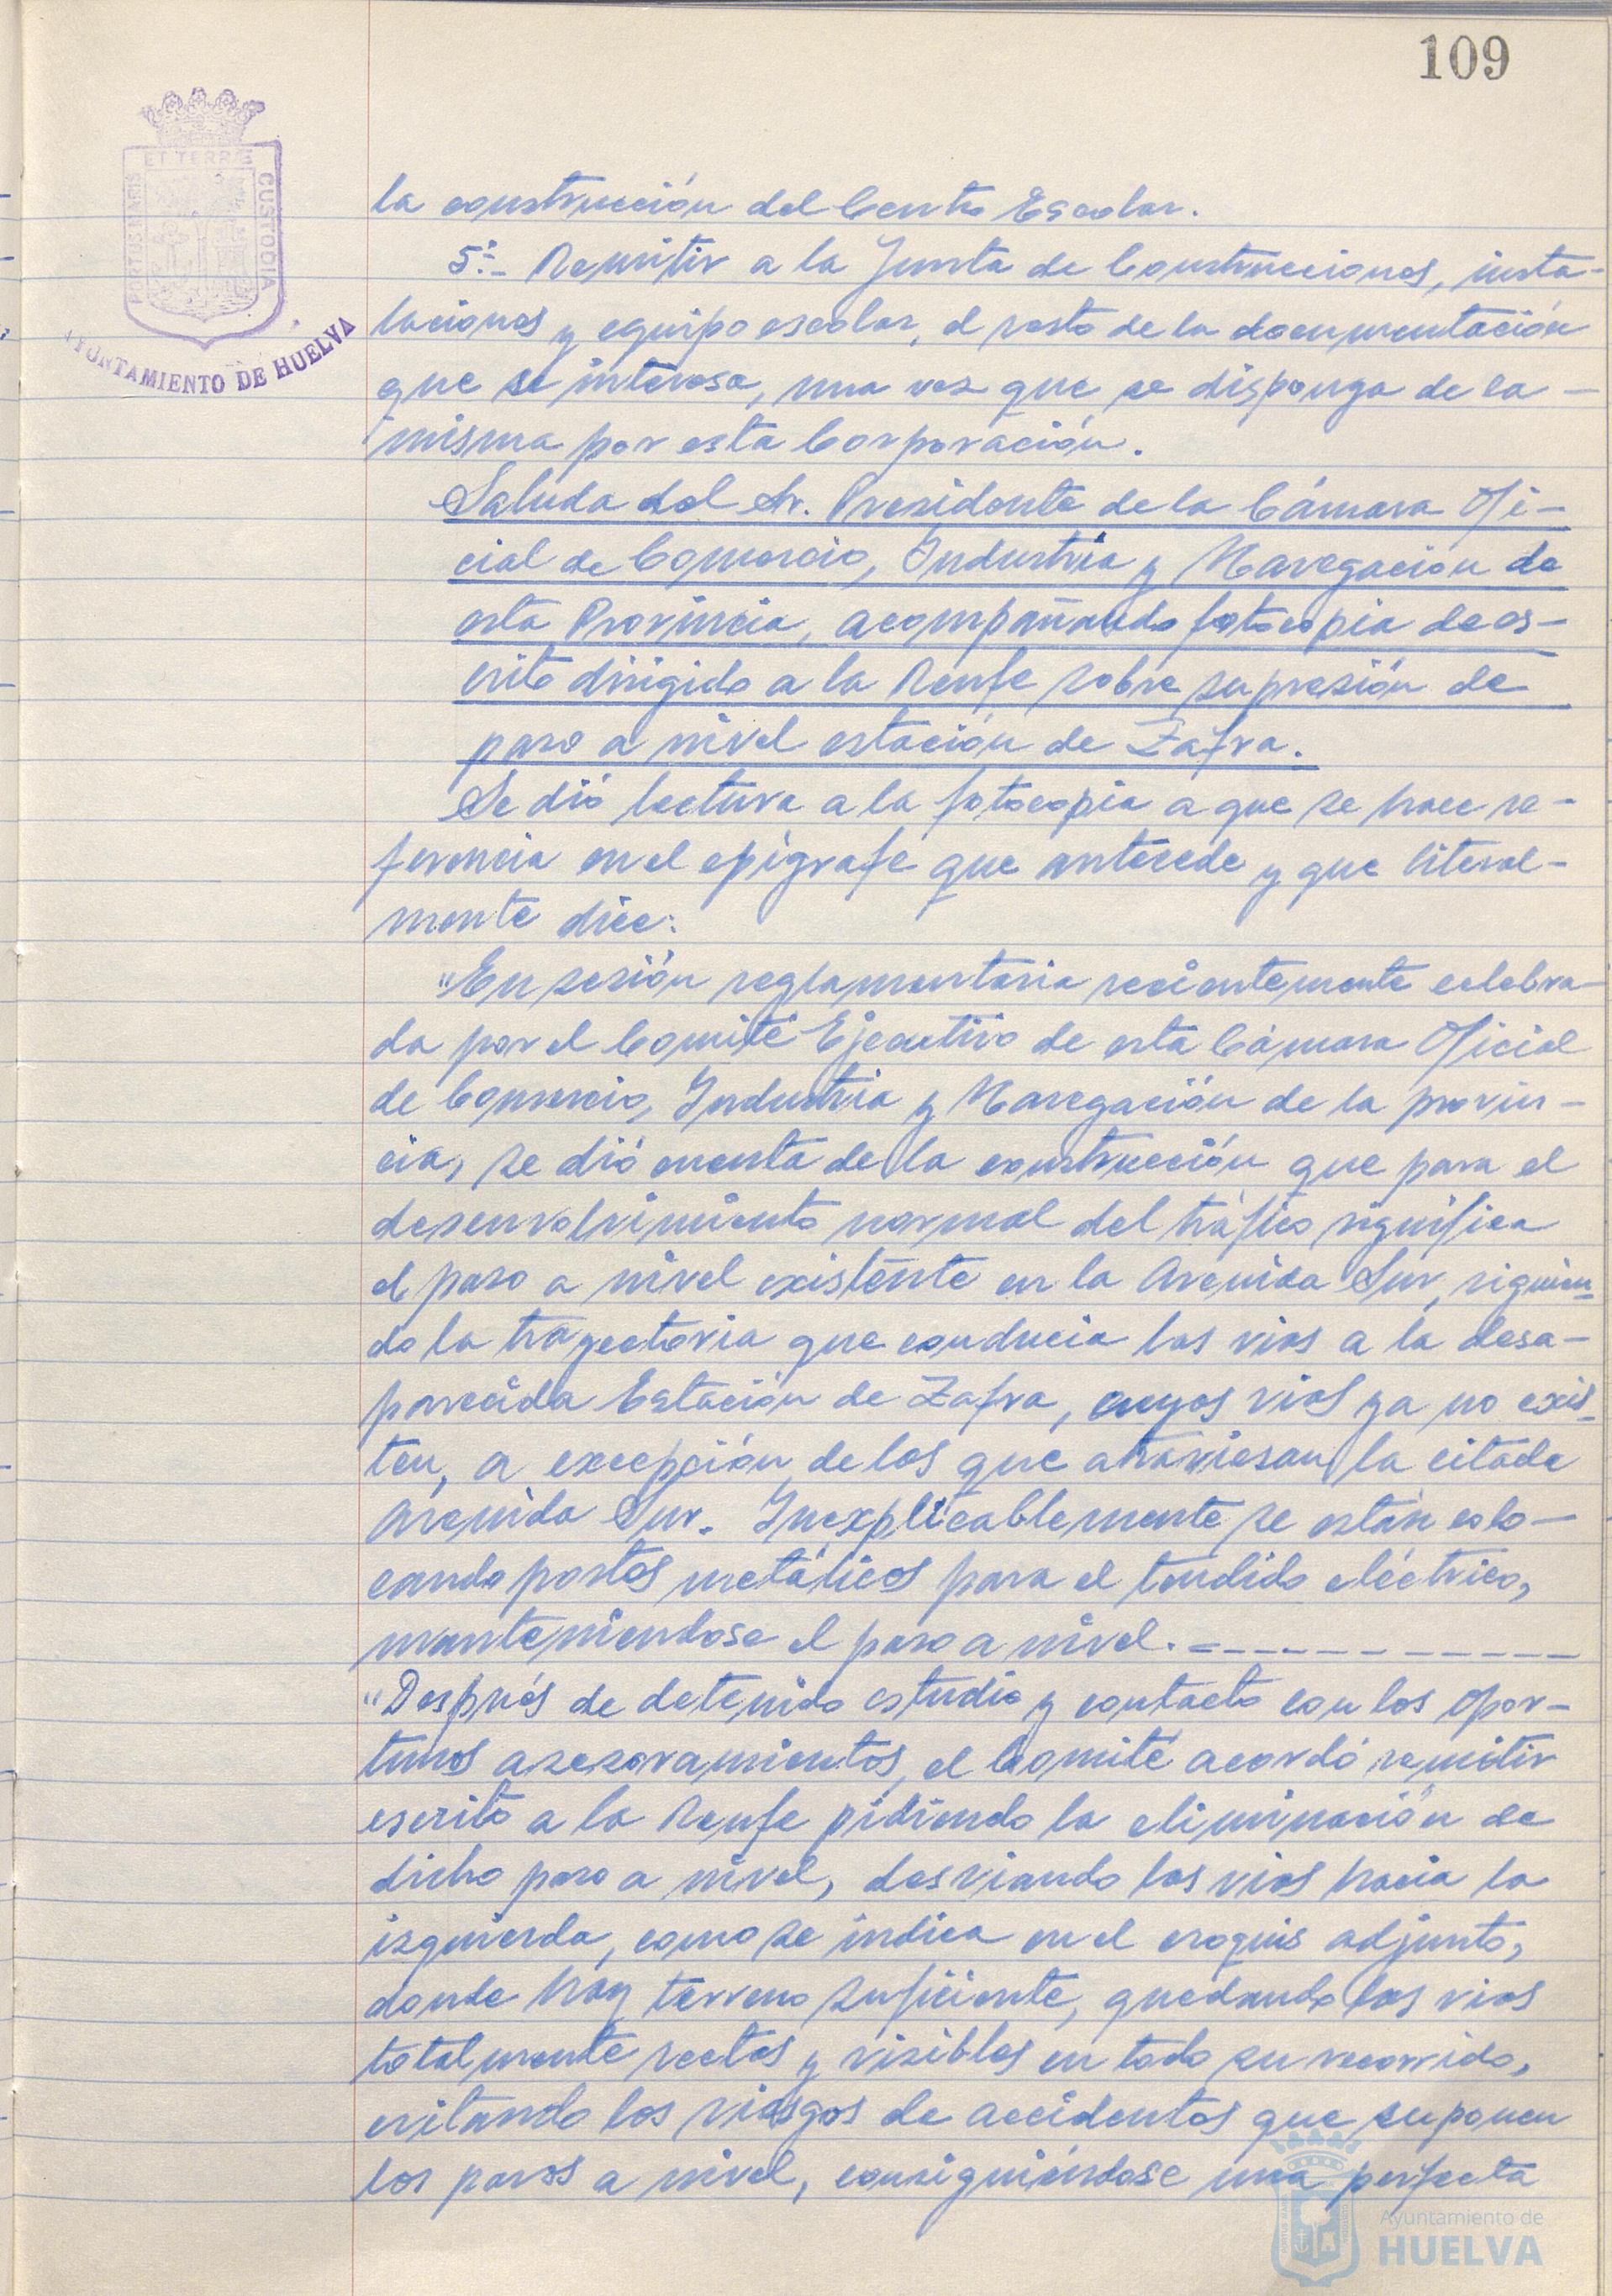 109
ET TERRÆ
PORTUS MARIS
CUSTODIA
AYUNTAMIENTO DE HUELVA
la construcción del Centro Escolar.
5º.- Remitir a la Junta de Construcciones, insta-
laciones y equipo escolar, el resto de la documentación
que se interesa, una vez que se disponga de la -
misma por esta Corporación.
Saluda del Sr. Presidente de la Cámara Ofi-
cial de Comercio, Industria y Navegación de
esta Provincia, acompañando fotocopia de es-
crito dirigido a la Renfe sobre supresión de
paso a nivel estación de Zafra.
Se dió lectura a la fotocopia a que se hace re-
ferencia en el epígrafe que antecede y que literal-
mente dice:
"En sesión reglamentaria recientemente celebra-
da por el Comité Ejecutivo de esta Cámara Oficial
de Comercio, Industria y Navegación de la provin-
cia, se dió cuenta de la construcción que para el
desenvolvimiento normal del tráfico significa
el paso a nivel existente en la Avenida Sur, siguien-
do la trayectoria que conducia las vias a la desa-
parecida Estación de Zafra, cuyas vias ya no exis-
ten, a excepción de las que atraviesan la citada
Avenida Sur. Inexplicablemente se están colo-
cando postes metálicos para el tendido eléctrico,
manteniendose el paso a nivel.- - - - - - - - - -
"Después de detenido estudio y contacto con los opor-
tunos asesoramientos, el Comité acordó remitir
escrito a la Renfe pidiendo la eliminación de
dicho paso a nivel, desviando las vias hacia la
izquierda, como se indica en el croquis adjunto,
donde hay terreno suficiente, quedando las vias
totalmente rectas y visibles en todo su recorrido,
evitando los riesgos de accidentes que suponen
los pasos a nivel, consiguiéndose una perfecta
Ayuntamiento de
HUELVA